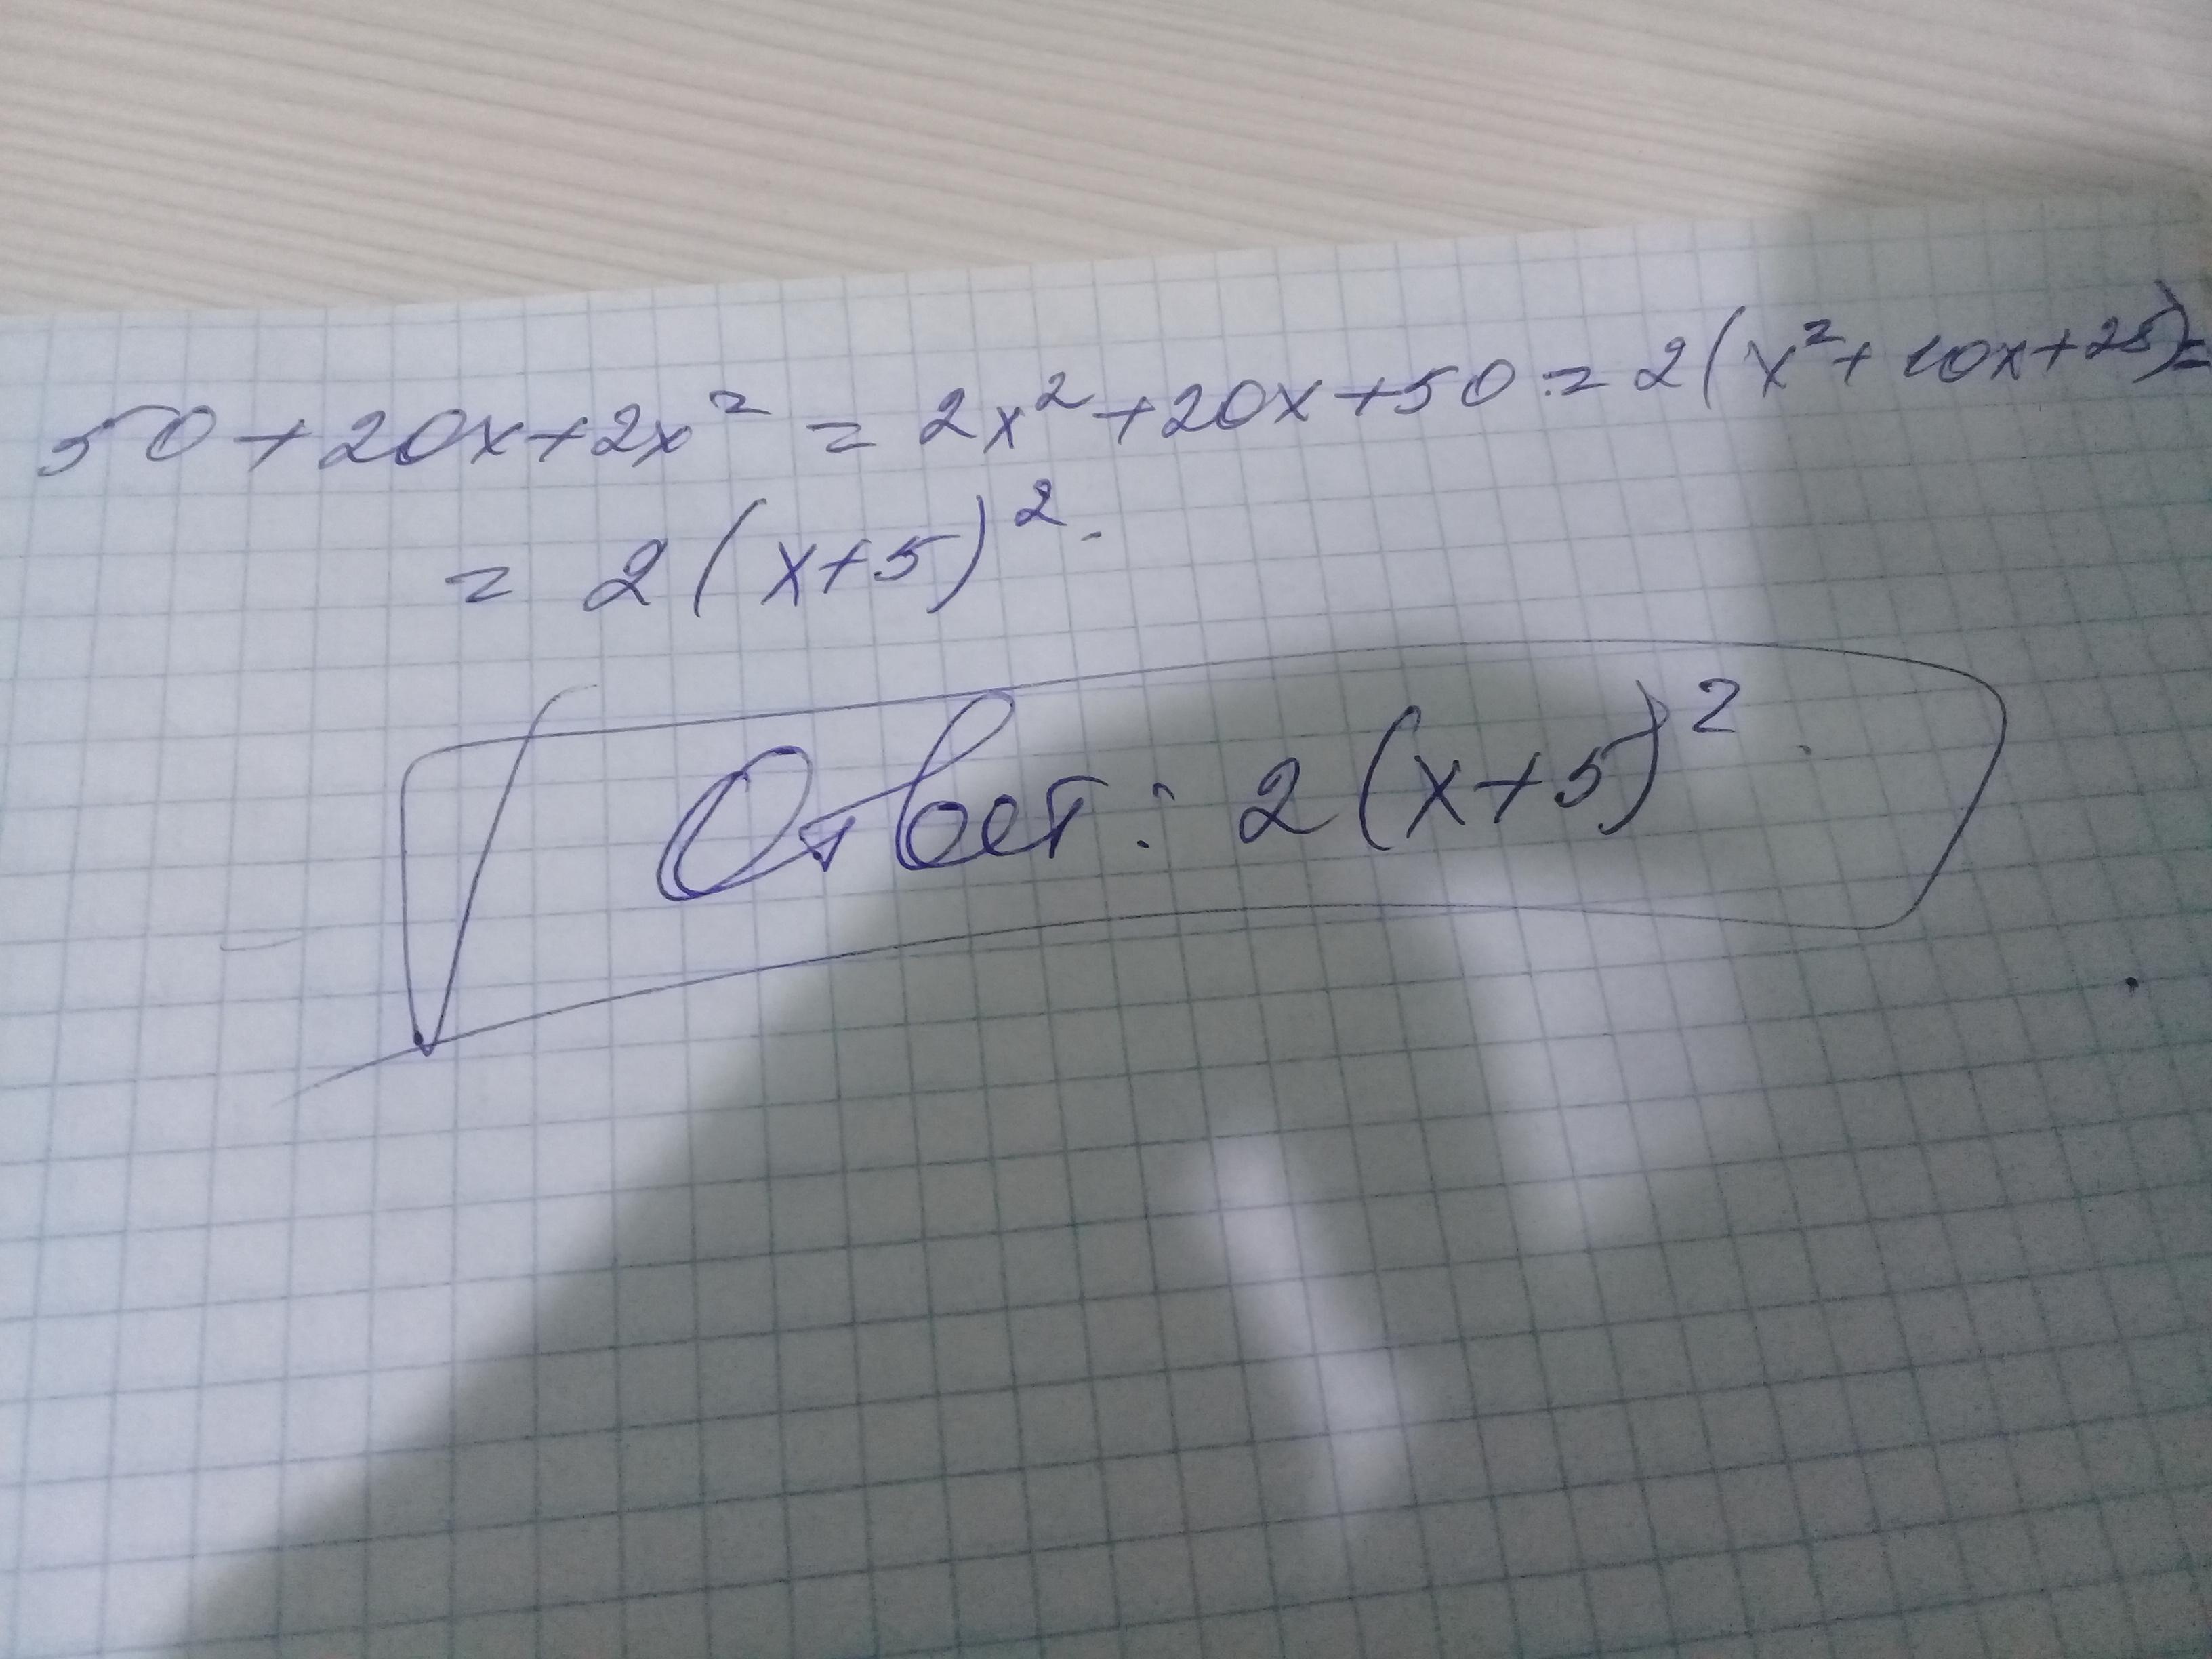 50+20x+2x² = 2x²+20x+50 = 2(x²+10x+25)=
= 2(x+5)².
Ответ: 2(x+5)².